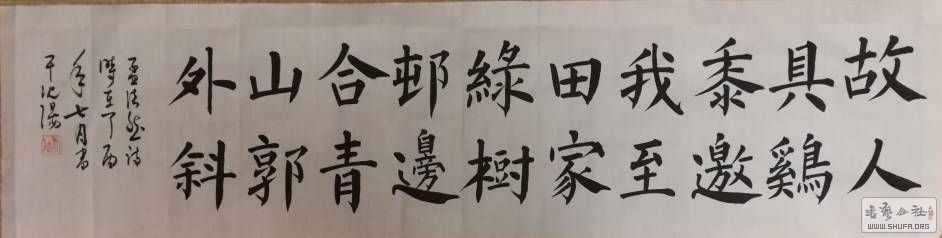 故人
具鷄
黍邀
我至
田家
綠樹
邨邊
合青
山郭
外斜
孟浩然詩
時在丁酉
年七月書
于沈陽
書藝公社
WWW.SHUFA.ORG